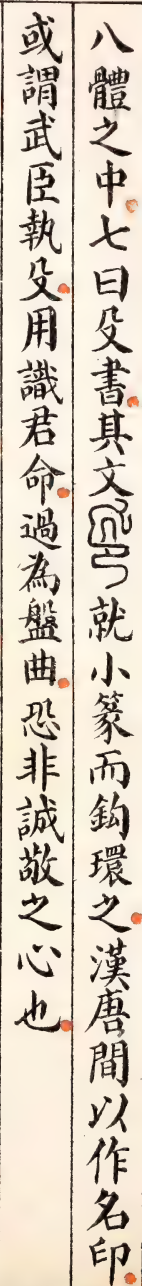 八體之中七曰殳書其文就小篆而鈎環之漢唐間以作名印
或謂武臣執殳用識君命過為盤曲恐非誠敬之心也